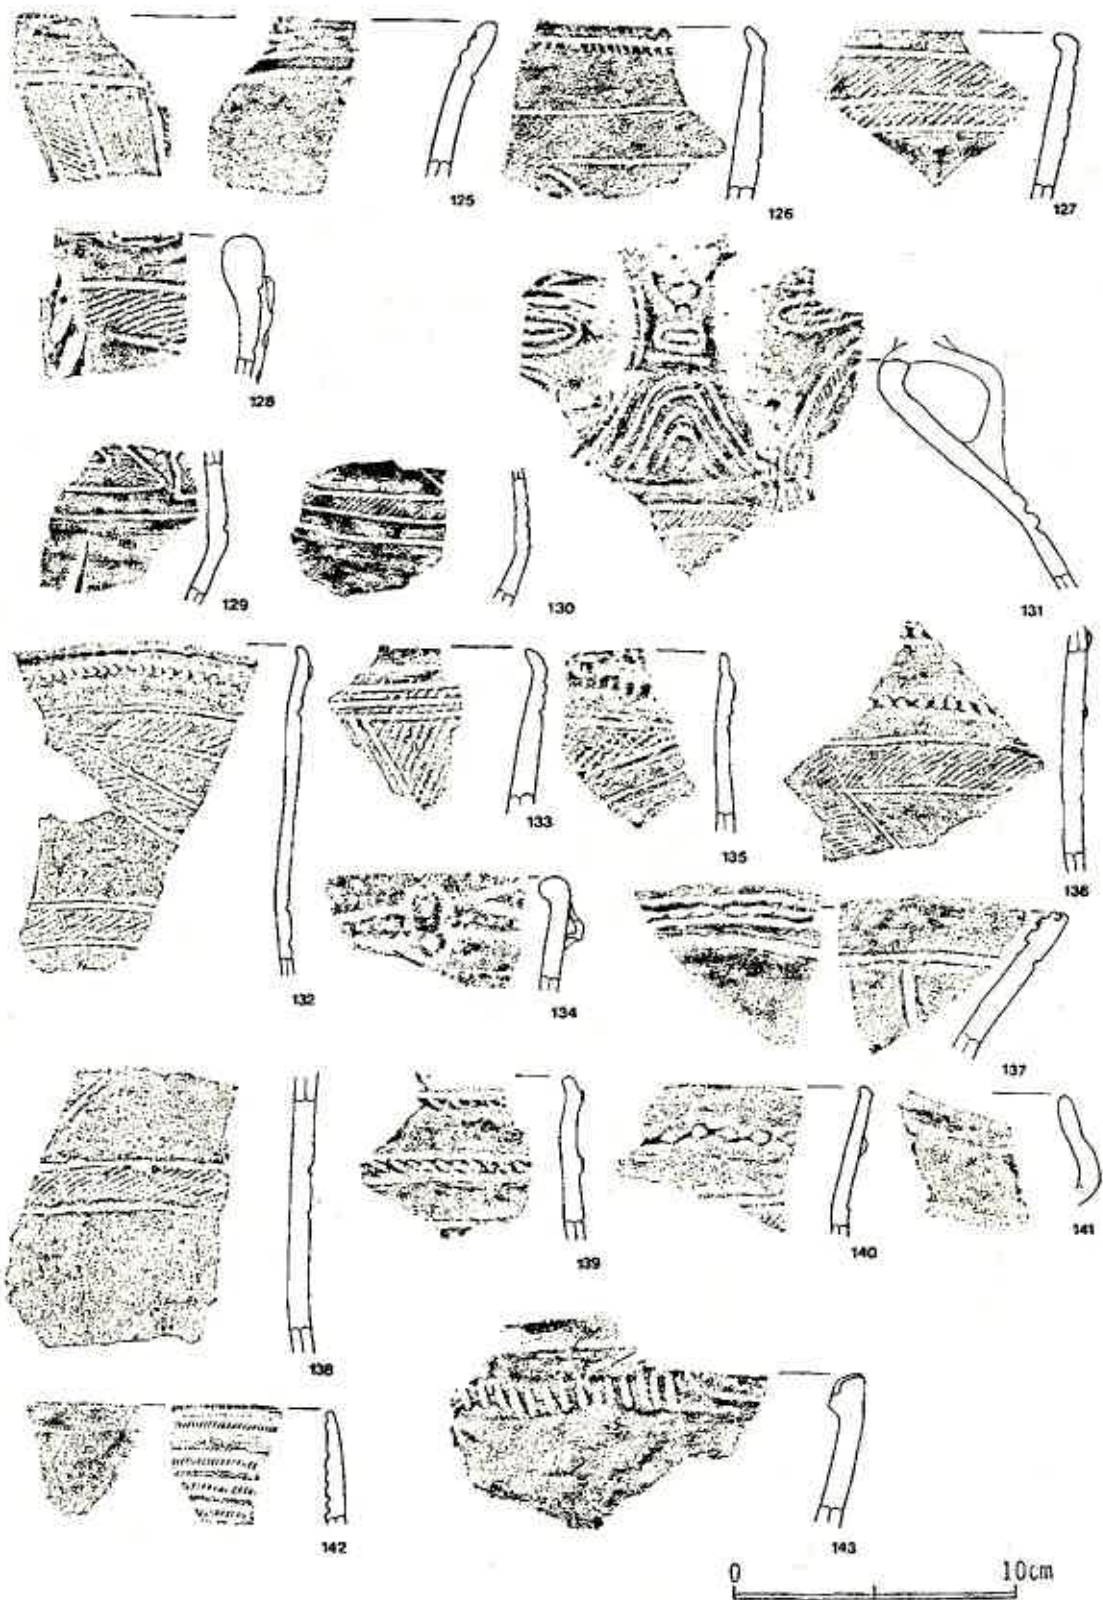 125
126
127
128
129
130
131
132
133
134
135
136
137
138
139
140
141
142
143
0 10cm